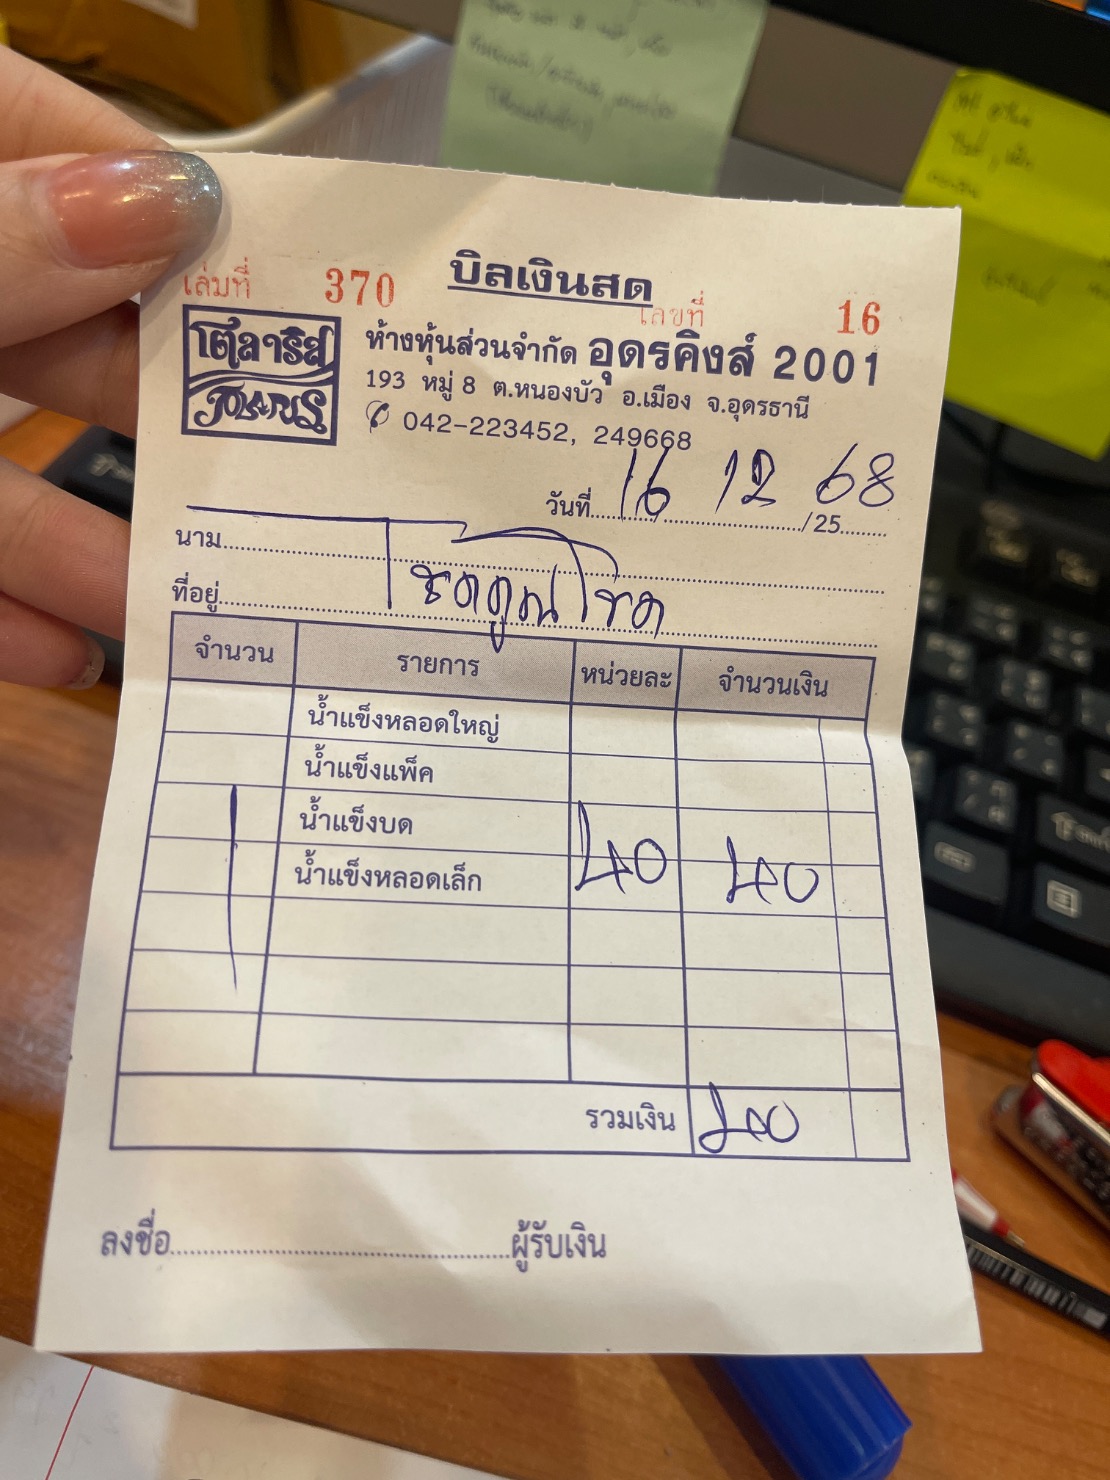 บิลเงินสด
เล่มที่ 370 เลขที่ 16
โตลาริส
POLARIS
ห้างหุ้นส่วนจำกัด อุดรคิงส์ 2001
193 หมู่ 8 ต.หนองบัว อ.เมือง จ.อุดรธานี
042-223452, 249668
วันที่ 16 / 12 /25 68
นาม
ที่อยู่
จำนวน รายการ หน่วยละ จำนวนเงิน
น้ำแข็งหลอดใหญ่
น้ำแข็งแพ็ค
1 น้ำแข็งบด 40 40
น้ำแข็งหลอดเล็ก
รวมเงิน 40
ลงชื่อ ผู้รับเงิน